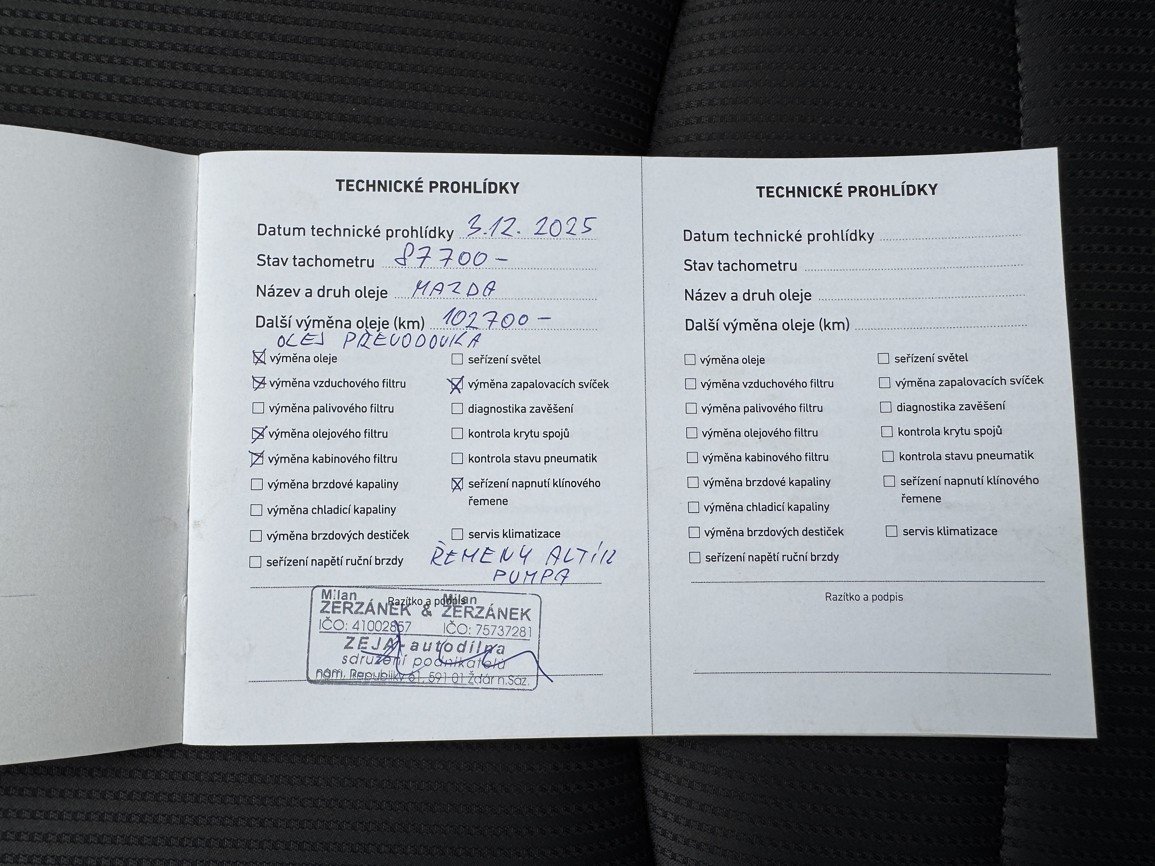 TECHNICKÉ PROHLÍDKY
Datum technické prohlídky 3.12. 2025
Stav tachometru 87700-
Název a druh oleje MAZDA
Další výměna oleje (km) 102700-
OLEJ PŘEVODOVKA
výměna oleje
výměna vzduchového filtru
výměna palivového filtru
výměna olejového filtru
výměna kabinového filtru
výměna brzdové kapaliny
výměna chladicí kapaliny
výměna brzdových destiček
seřízení napětí ruční brzdy
seřízení světel
výměna zapalovacích svíček
diagnostika zavěšení
kontrola krytu spojů
kontrola stavu pneumatik
seřízení napnutí klínového
řemene
servis klimatizace
ŘEMENY
PUMPA
Razítko a podpis
Milan Milan
ZERZÁNEK & ZERZÁNEK
IČO: 41002857 IČO: 75737281
ZEJA-autodílna
sdružení podnikatelů
nám. Republiky 61, 591 01 Žďár n.Sáz.
TECHNICKÉ PROHLÍDKY
Datum technické prohlídky
Stav tachometru
Název a druh oleje
Další výměna oleje (km)
výměna oleje
výměna vzduchového filtru
výměna palivového filtru
výměna olejového filtru
výměna kabinového filtru
výměna brzdové kapaliny
výměna chladicí kapaliny
výměna brzdových destiček
seřízení napětí ruční brzdy
seřízení světel
výměna zapalovacích svíček
diagnostika zavěšení
kontrola krytu spojů
kontrola stavu pneumatik
seřízení napnutí klínového
řemene
servis klimatizace
Razítko a podpis